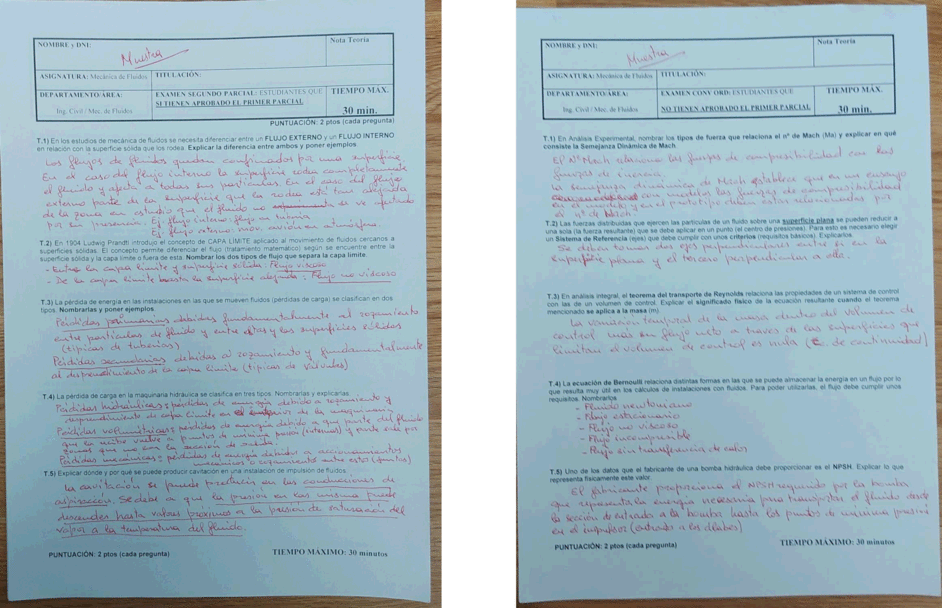 NOMBRE y DNI:
Muestra
Nota Teoría
ASIGNATURA: Mecánica de Fluidos
TITULACIÓN:
DEPARTAMENTO/ÁREA:
Ing. Civil / Mec. de Fluidos
EXAMEN SEGUNDO PARCIAL: ESTUDIANTES QUE
SI TIENEN APROBADO EL PRIMER PARCIAL
TIEMPO MÁX.
30 min.
PUNTUACIÓN: 2 ptos (cada pregunta)
T.1) En los estudios de mecánica de fluidos se necesita diferenciar entre un FLUJO EXTERNO y un FLUJO INTERNO
en relación con la superficie sólida que los rodea. Explicar la diferencia entre ambos y poner ejemplos
Los flujos de fluidos quedan confinados por una superficie.
En el caso del flujo interno la superficie rodea completamente
el fluido y afecta a todas sus partículas. En el caso del flujo
externo parte de la superficie que la rodea está tan alejada
de la zona en estudio que el fluido no se ve afectado
por su presencia. Ej. flujo interno: flujo en tubería
Ej. flujo externo: mov. avión en atmósfera
T.2) En 1904 Ludwig Prandtl introdujo el concepto de CAPA LÍMITE aplicado al movimiento de fluidos cercanos a
superficies sólidas. El concepto permite diferenciar el flujo (tratamiento matemático) según se encuentre entre la
superficie sólida y la capa límite o fuera de esta. Nombrar los dos tipos de flujo que separa la capa límite.
- Entre la capa límite y superficie sólida: Flujo viscoso
- De la capa límite hasta la superficie alejada: Flujo no viscoso
T.3) La pérdida de energía en las instalaciones en las que se mueven fluidos (pérdidas de carga) se clasifican en dos
tipos. Nombrarlas y poner ejemplos.
Pérdidas primarias debidas fundamentalmente al rozamiento
entre partículas de fluido y entre estas y las superficies sólidas
(típicas de tuberías)
Pérdidas secundarias debidas al rozamiento y fundamentalmente
al desprendimiento de la capa límite (típicas de válvulas)
T.4) La pérdida de carga en la maquinaria hidráulica se clasifica en tres tipos. Nombrarlas y explicarlas.
Pérdidas hidráulicas: pérdidas de energía debido a rozamiento y
desprendimiento de capa límite en el interior de la maquinaria
Pérdidas volumétricas: pérdidas de energía debido a que parte del fluido
que la recibe vuelve a puntos de mínima presión (internas) y parte sale por
zonas que no son la sección de salida.
Pérdidas mecánicas: pérdidas de energía debidas a accionamientos
mecánicos o rozamientos entre estos (juntas)
T.5) Explicar dónde y por qué se puede producir cavitación en una instalación de impulsión de fluidos.
La cavitación se puede producir en las conducciones de
aspiración. Se debe a que la presión en las mismas puede
descender hasta valores próximos a la presión de saturación del
vapor a la temperatura del fluido.
PUNTUACIÓN: 2 ptos (cada pregunta)
TIEMPO MÁXIMO: 30 minutos
NOMBRE y DNI:
Muestra
Nota Teoría
ASIGNATURA: Mecánica de Fluidos
TITULACIÓN:
DEPARTAMENTO/ÁREA:
Ing. Civil / Mec. de Fluidos
EXAMEN CONV ORD: ESTUDIANTES QUE
NO TIENEN APROBADO EL PRIMER PARCIAL
TIEMPO MÁX.
30 min.
T.1) En Análisis Experimental, nombrar los tipos de fuerza que relaciona el nº de Mach (Ma) y explicar en qué
consiste la Semejanza Dinámica de Mach.
El nº Mach relaciona las fuerzas de compresibilidad con las
fuerzas de inercia.
La semejanza dinámica de Mach establece que en un ensayo
con modelos las fuerzas de compresibilidad
en el modelo y en el prototipo deben estar relacionadas por
el nº de Mach.
T.2) Las fuerzas distribuidas que ejercen las partículas de un fluido sobre una superficie plana se pueden reducir a
una sola (la fuerza resultante) que se debe aplicar en un punto (el centro de presiones). Para esto es necesario elegir
un Sistema de Referencia (ejes) que debe cumplir con unos criterios (requisitos básicos). Explicarlos.
Se deben tomar dos ejes perpendiculares entre sí en la
superficie plana y el tercero perpendicular a ella.
T.3) En análisis integral, el teorema del transporte de Reynolds relaciona las propiedades de un sistema de control
con las de un volumen de control. Explicar el significado físico de la ecuación resultante cuando el teorema
mencionado se aplica a la masa (m).
La variación temporal de la masa dentro del volumen de
control más su flujo neto a través de las superficies que
limitan el volumen de control es nula (Ec. de continuidad)
T.4) La ecuación de Bernoulli relaciona distintas formas en las que se puede almacenar la energía en un flujo por lo
que resulta muy útil en los cálculos de instalaciones con fluidos. Para poder utilizarlas, el flujo debe cumplir unos
requisitos. Nombrarlos
- Fluido newtoniano
- Flujo estacionario
- Flujo no viscoso
- Flujo incompresible
- Flujo sin transferencia de calor
T.5) Uno de los datos que el fabricante de una bomba hidráulica debe proporcionar es el NPSH. Explicar lo que
representa físicamente este valor.
El fabricante proporciona el NPSH requerido por la bomba
que representa la energía necesaria para transportar el fluido desde
la sección de entrada a la bomba hasta los puntos de mínima presión
en el impulsor (entrada a los álabes)
PUNTUACIÓN: 2 ptos (cada pregunta)
TIEMPO MÁXIMO: 30 minutos